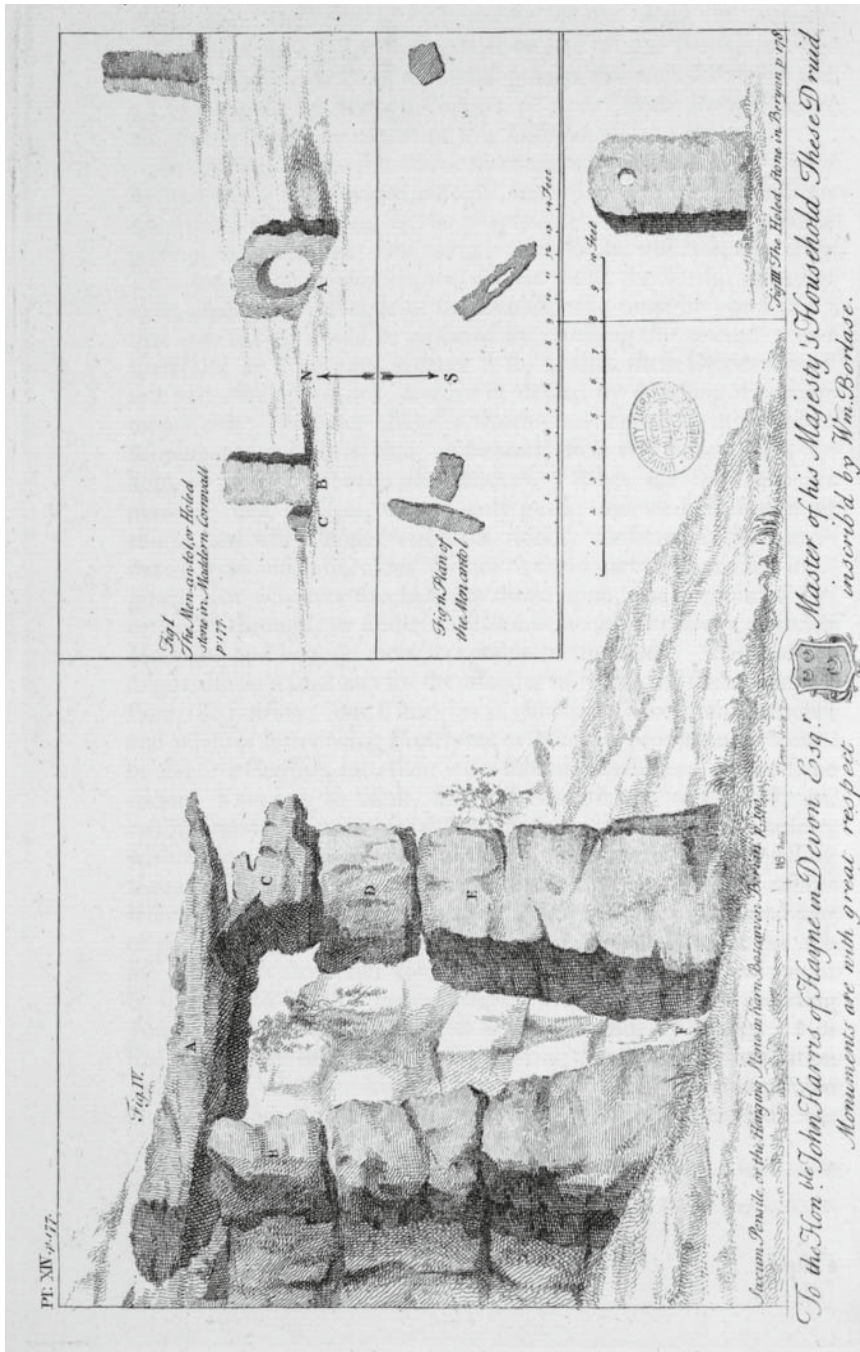 Pl: XIV, p. 177.
Fig. IV.
A
B
C
D
E
F
Saxum Pensile, or the Hanging Stone in Karn Boscawen Berian p.
Fig I.
The Men-an-tol, or Holed
stone in Maddern Cornwall
p. 177.
C B
A
N
S
Fig II Plan of
the Men an tol
1 2 3 4 5 6 7 8 9 10 11 12 13 14 Feet
1 2 3 4 5 6 7 8 9 10 Feet
Fig III The Holed Stone in Beryan p 178
UNIVERSITY LIBRARY
CAMBRIDGE
To the Hon.ble John Harris of Hayne in Devon Esq.r Master of his Majesty's Household These Druid
Monuments are with great respect inscrib'd by Wm. Borlase.